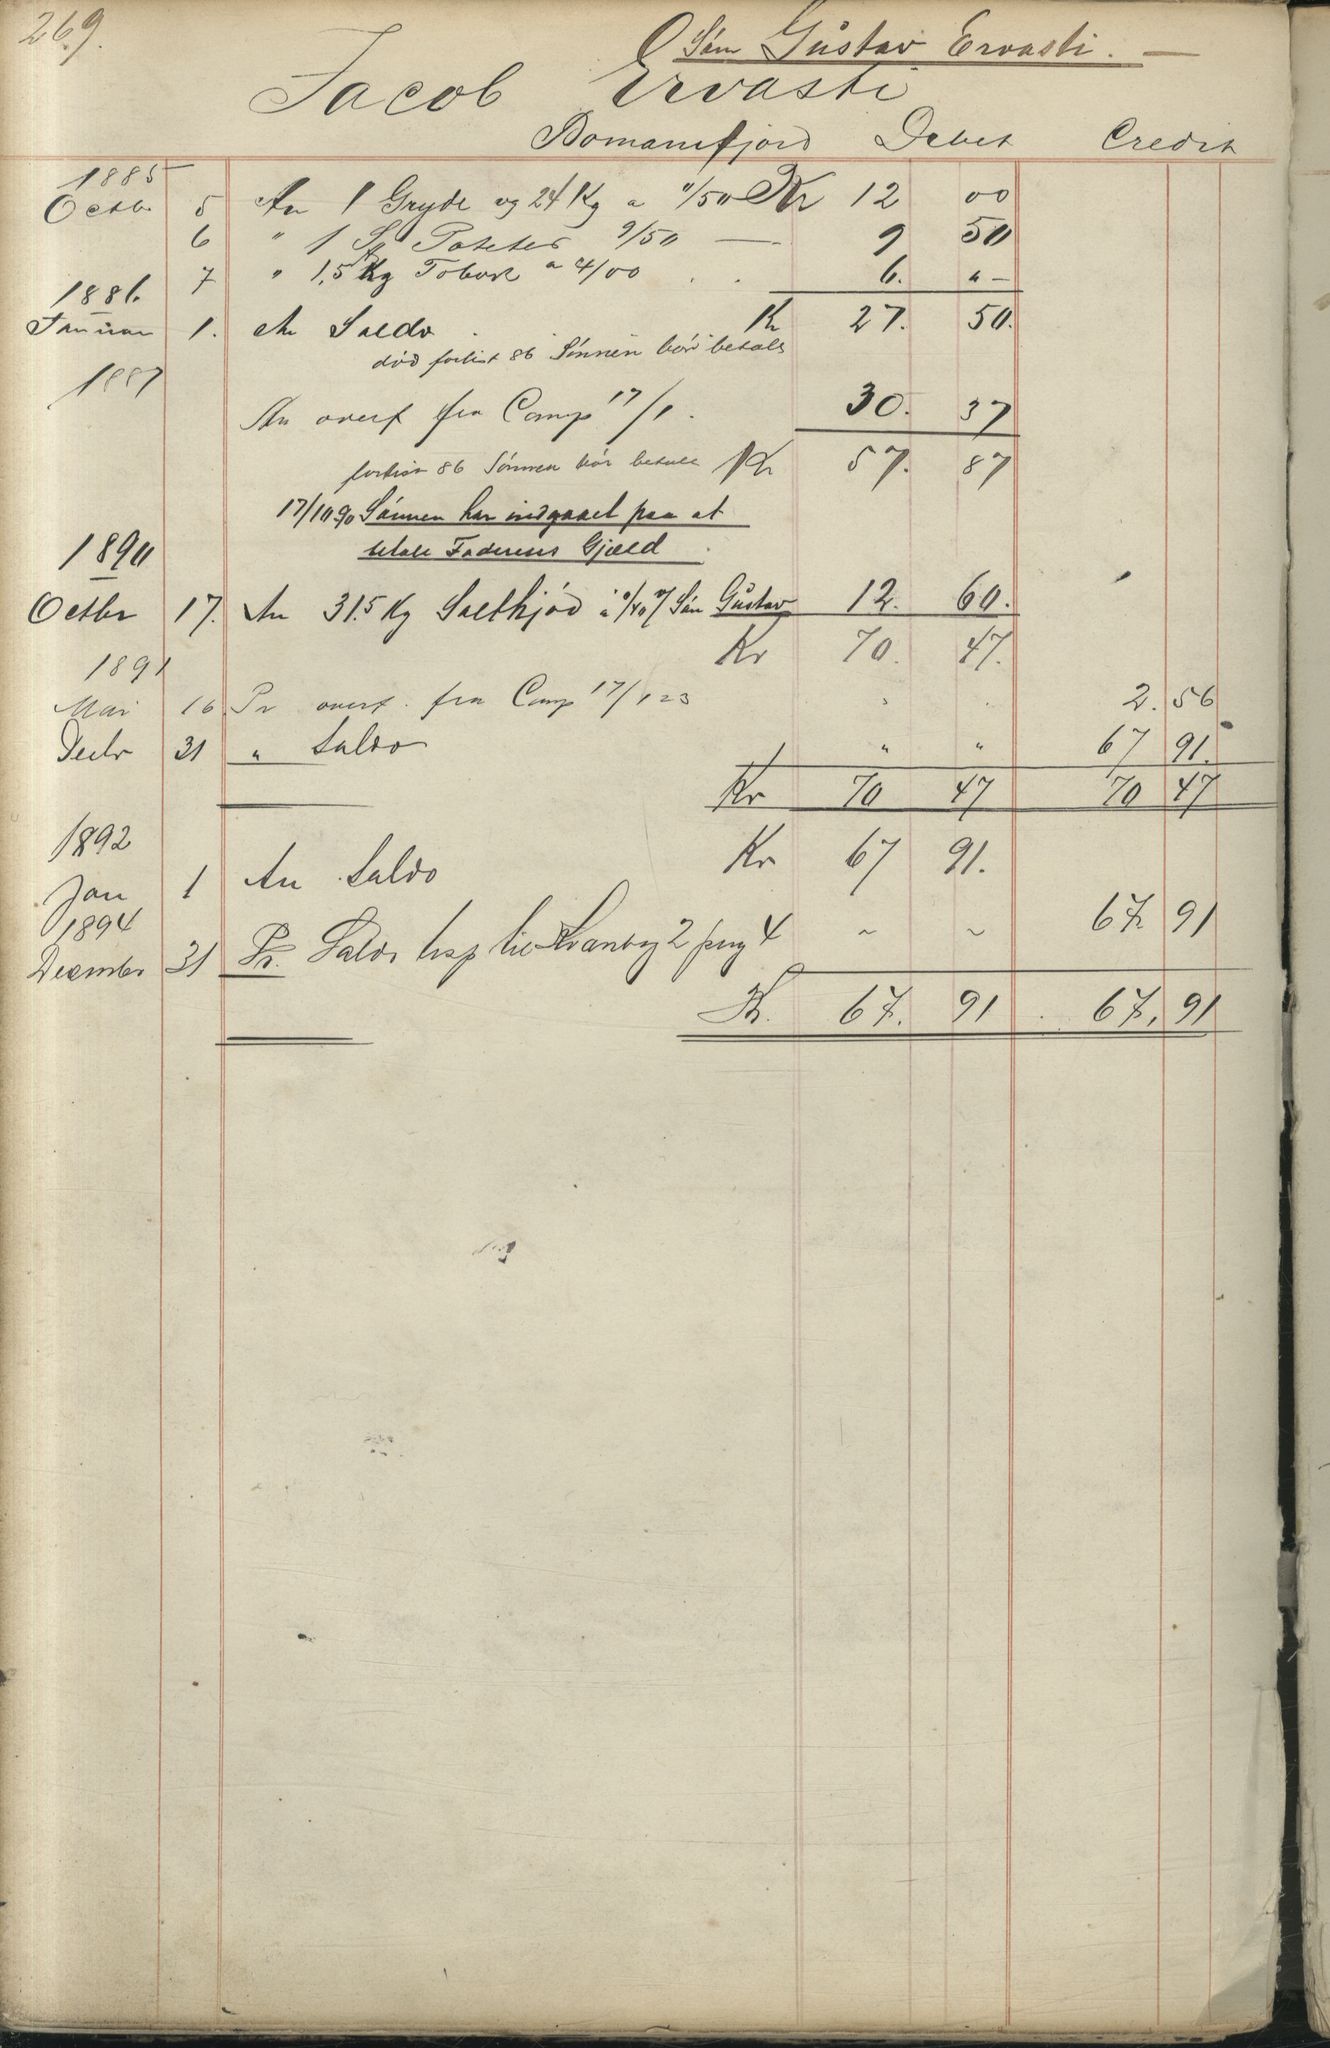 269.
Søn Gůstav Ervasti. —
Jacob Ervasti
Bomansfjord Debet Credit
1885
Octb. 5 An 1 Gryde vg 24 Kg a "/50 Kr 12 00
6 " 1 Poteter 9/50 — 9 50
7 " 1,5 Kg Tobak a 4/00 . . 6. " –
1886.
Januar 1. An Saldo Kr 27. 50.
død forlist 86 Sønnen bør betale
1887
An overf fra Comp 17/1. 30. 37
forlist 86 Sønnen bør betale Kr 57. 87
17/10 90 Sønnen har indgaaet paa at
betale Faderens Gjæld.
1890
Octbr 17. An 31.5 Kg Saltkjød a "/40 Søn Gůstav 12. 60.
Kr 70. 47.
1891
Mai 16 Pr overf. fra Comp 17/1 23 " . 2. 56
Decbr 31 " Saldo " " 67 91.
Kr 70 47 70 47
1892
Jan 1 An Saldo Kr 67 91.
1894
December 31 Pr. Saldo til 2 pag 4 ~ ~ 67. 91
Kr. 67. 91 . 67, 91